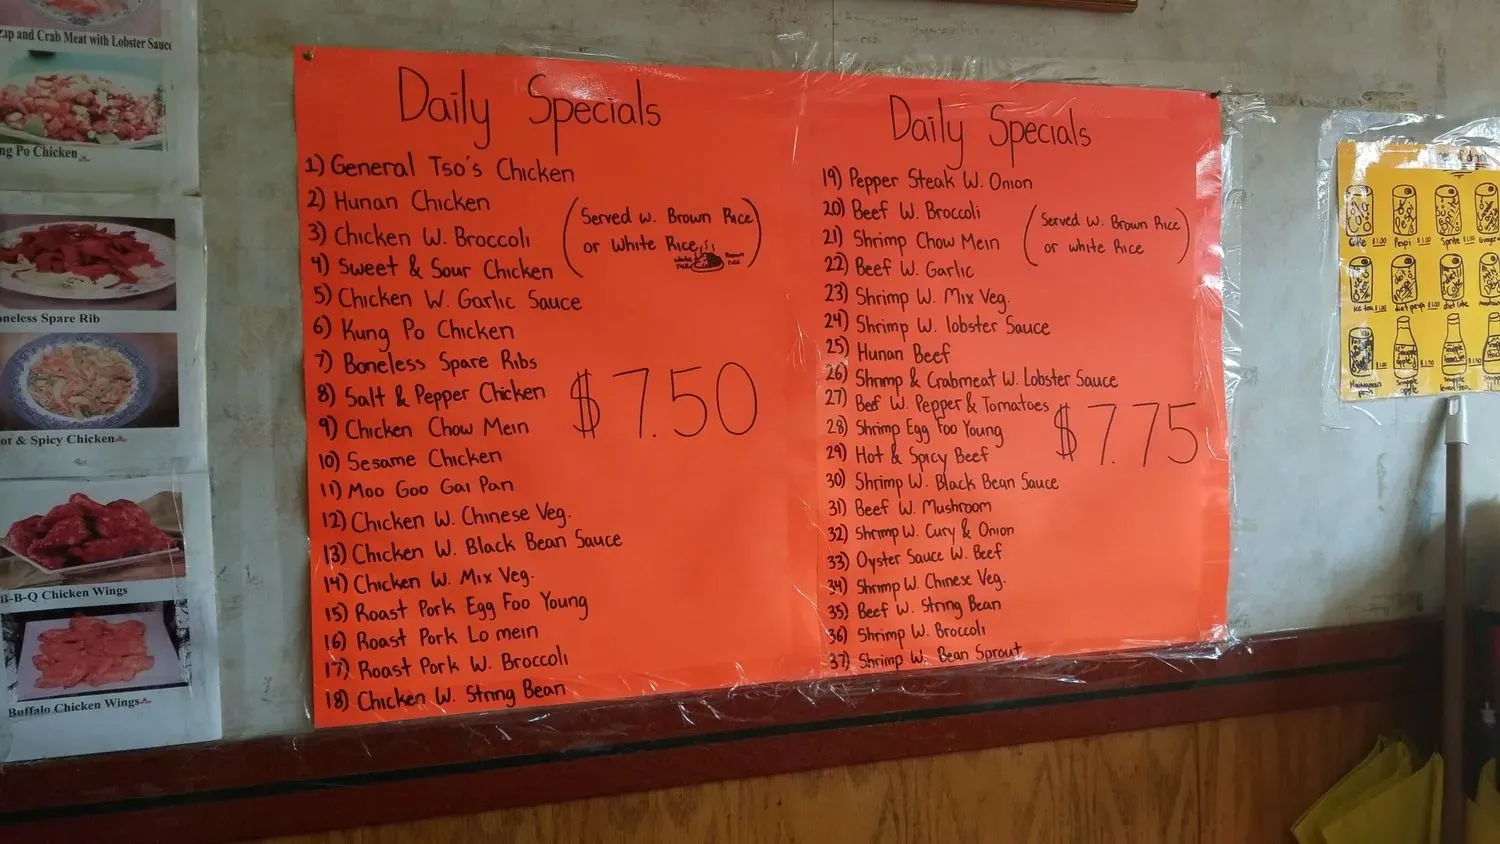 ap and Crab Meat with Lobster Sauce
ng Po Chicken
oneless Spare Rib
ot & Spicy Chicken
B-B-Q Chicken Wings
Buffalo Chicken Wings
Daily Specials
1) General Tso's Chicken
2) Hunan Chicken
3) Chicken W. Broccoli
4) Sweet & Sour Chicken
5) Chicken W. Garlic Sauce
6) Kung Po Chicken
7) Boneless Spare Ribs
8) Salt & Pepper Chicken
9) Chicken Chow Mein
10) Sesame Chicken
11) Moo Goo Gai Pan
12) Chicken W. Chinese Veg.
13) Chicken W. Black Bean Sauce
14) Chicken W. Mix Veg.
15) Roast Pork Egg Foo Young
16) Roast Pork Lo mein
17) Roast Pork W. Broccoli
18) Chicken W. String Bean
(Served w. Brown Rice
or White Rice)
White Rice
Brown Rice
$7.50
Daily Specials
19) Pepper Steak W. Onion
20) Beef W. Broccoli
21) Shrimp Chow Mein
22) Beef W. Garlic
23) Shrimp W. Mix Veg.
24) Shrimp W. lobster Sauce
25) Hunan Beef
26) Shrimp & Crabmeat W. Lobster Sauce
27) Beef W. Pepper & Tomatoes
28) Shrimp Egg Foo Young
29) Hot & Spicy Beef
30) Shrimp W. Black Bean Sauce
31) Beef W. Mushroom
32) Shrimp W. Cury & Onion
33) Oyster Sauce W. Beef
34) Shrimp W. Chinese Veg.
35) Beef W. String Bean
36) Shrimp W. Broccoli
37) Shrimp W. Bean Sprout
(Served W. Brown Rice
or white Rice)
$7.75
Coke $1.00 Pepsi $1.00 Sprite $1.00 Ginger
Ice tea $1.00 diet pepsi $1.00 diet Coke $1.00
Hawaiian $1.00 Snapple apple $1.50 Snapple $1.50